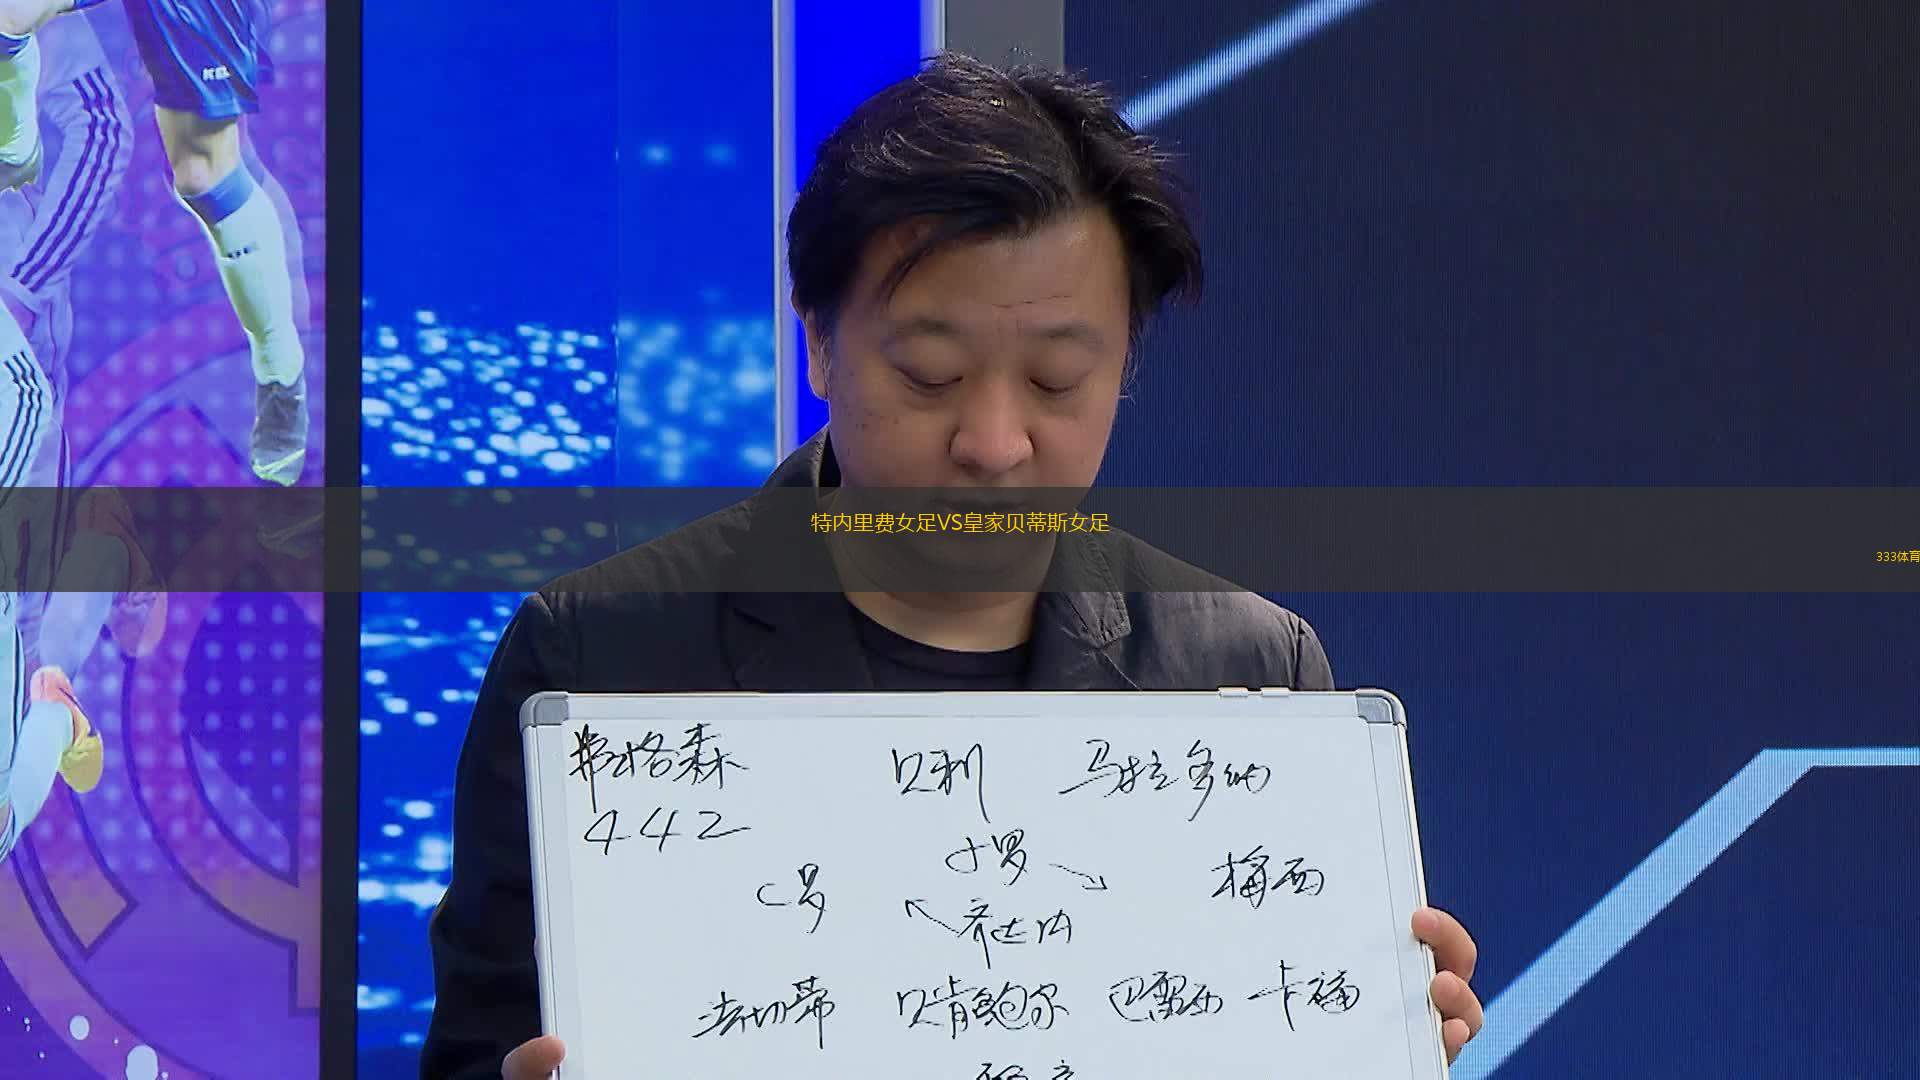 特内里费女足VS皇家贝蒂斯女足
333体育
弗格森 贝利 马拉多纳
442
小罗
C罗 梅西
齐达内
法切蒂 贝肯鲍尔 巴雷西 卡福